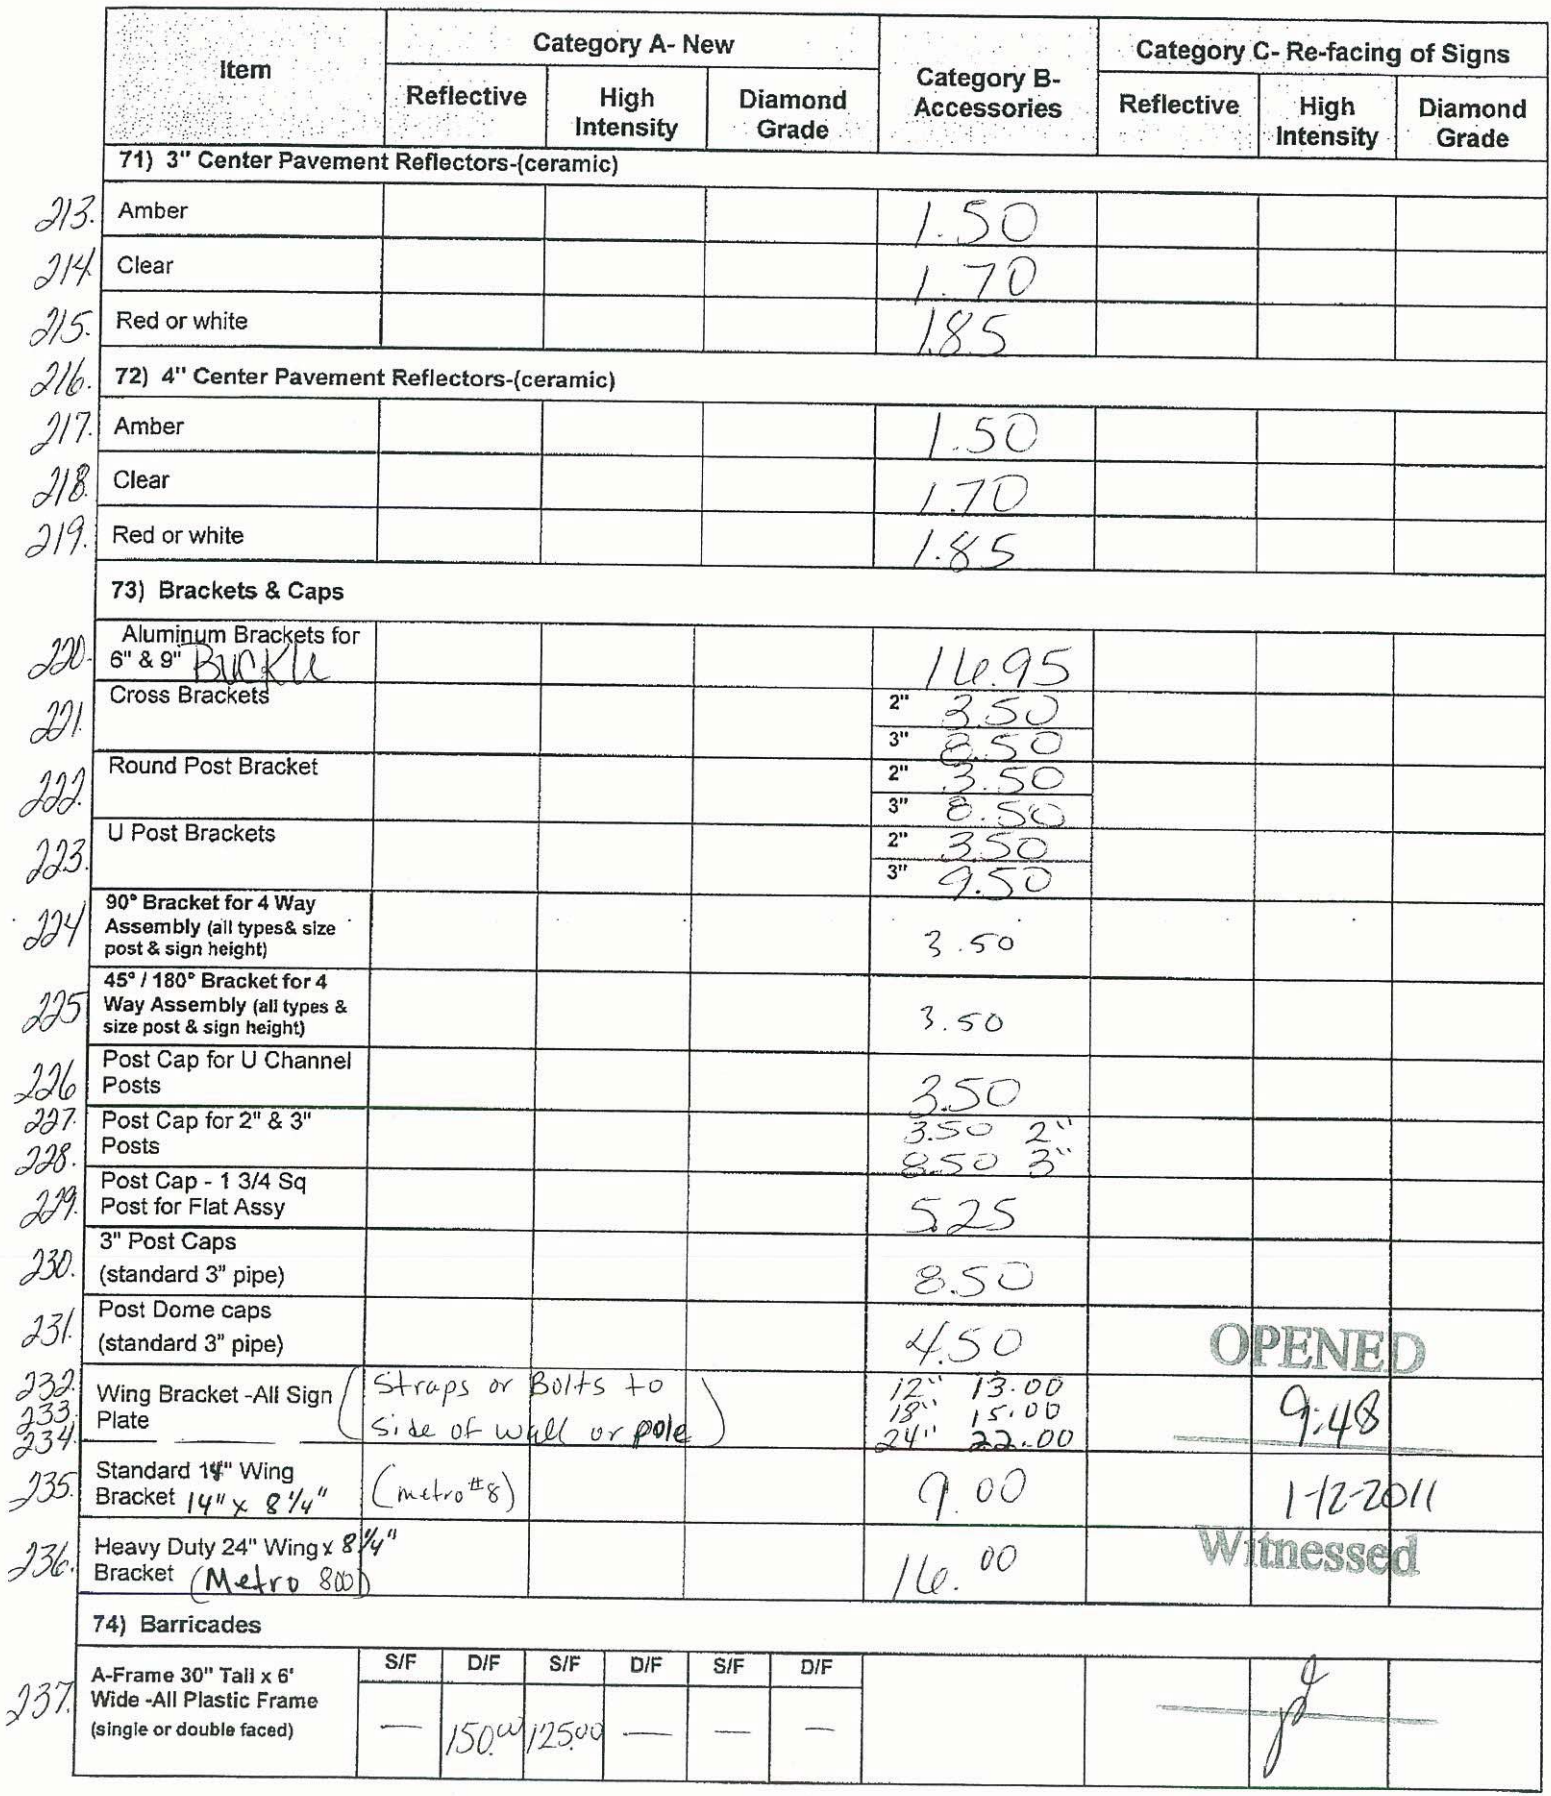 Item
Category A- New
Category B- Accessories
Category C- Re-facing of Signs
Reflective High Intensity Diamond Grade
Reflective High Intensity Diamond Grade
71) 3" Center Pavement Reflectors-(ceramic)
213. Amber 1.50
214 Clear 1.70
215. Red or white 1.85
216. 72) 4" Center Pavement Reflectors-(ceramic)
217. Amber 1.50
218. Clear 1.70
219. Red or white 1.85
73) Brackets & Caps
220. Aluminum Brackets for
6" & 9" Buckle 16.95
221. Cross Brackets 2" 3.50
3" 8.50
222. Round Post Bracket 2" 3.50
3" 8.50
223. U Post Brackets 2" 3.50
3" 9.50
224 90° Bracket for 4 Way
Assembly (all types& size
post & sign height) 3.50
225 45° / 180° Bracket for 4
Way Assembly (all types &
size post & sign height) 3.50
226 Post Cap for U Channel
Posts 3.50
227. Post Cap for 2" & 3" 3.50 2"
228. Posts 8.50 3"
229. Post Cap - 1 3/4 Sq
Post for Flat Assy 5.25
230. 3" Post Caps
(standard 3" pipe) 8.50
231. Post Dome caps
(standard 3" pipe) 4.50
OPENED
232. Wing Bracket -All Sign (Straps or Bolts to 12" 13.00
233. Plate side of wall or pole) 18" 15.00
234. 24" 22.00
9:48
235. Standard 14" Wing
Bracket 14" x 8 1/4" (metro #8) 9.00
1-12-2011
236. Heavy Duty 24" Wing x 8 1/4"
Bracket (Metro 800) 16.00
Witnessed
74) Barricades
S/F D/F S/F D/F S/F D/F
237. A-Frame 30" Tall x 6'
Wide -All Plastic Frame
(single or double faced) — 150.00 125.00 — — —